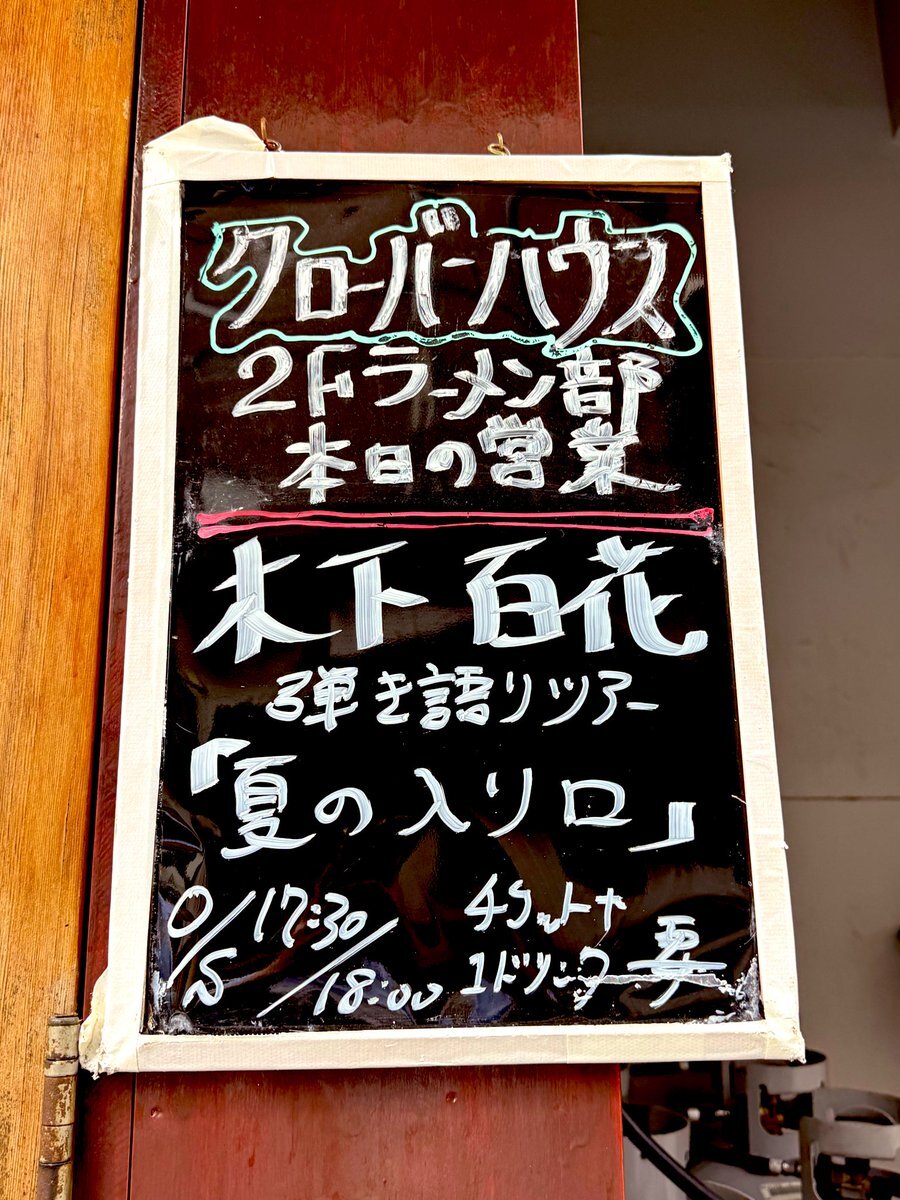 クローバーハウス
2Fラーメン部
本日の営業
木下百花
弾き語りツアー
「夏の入り口」
O/S 17:30/18:00
チケット+
1ドリンク要